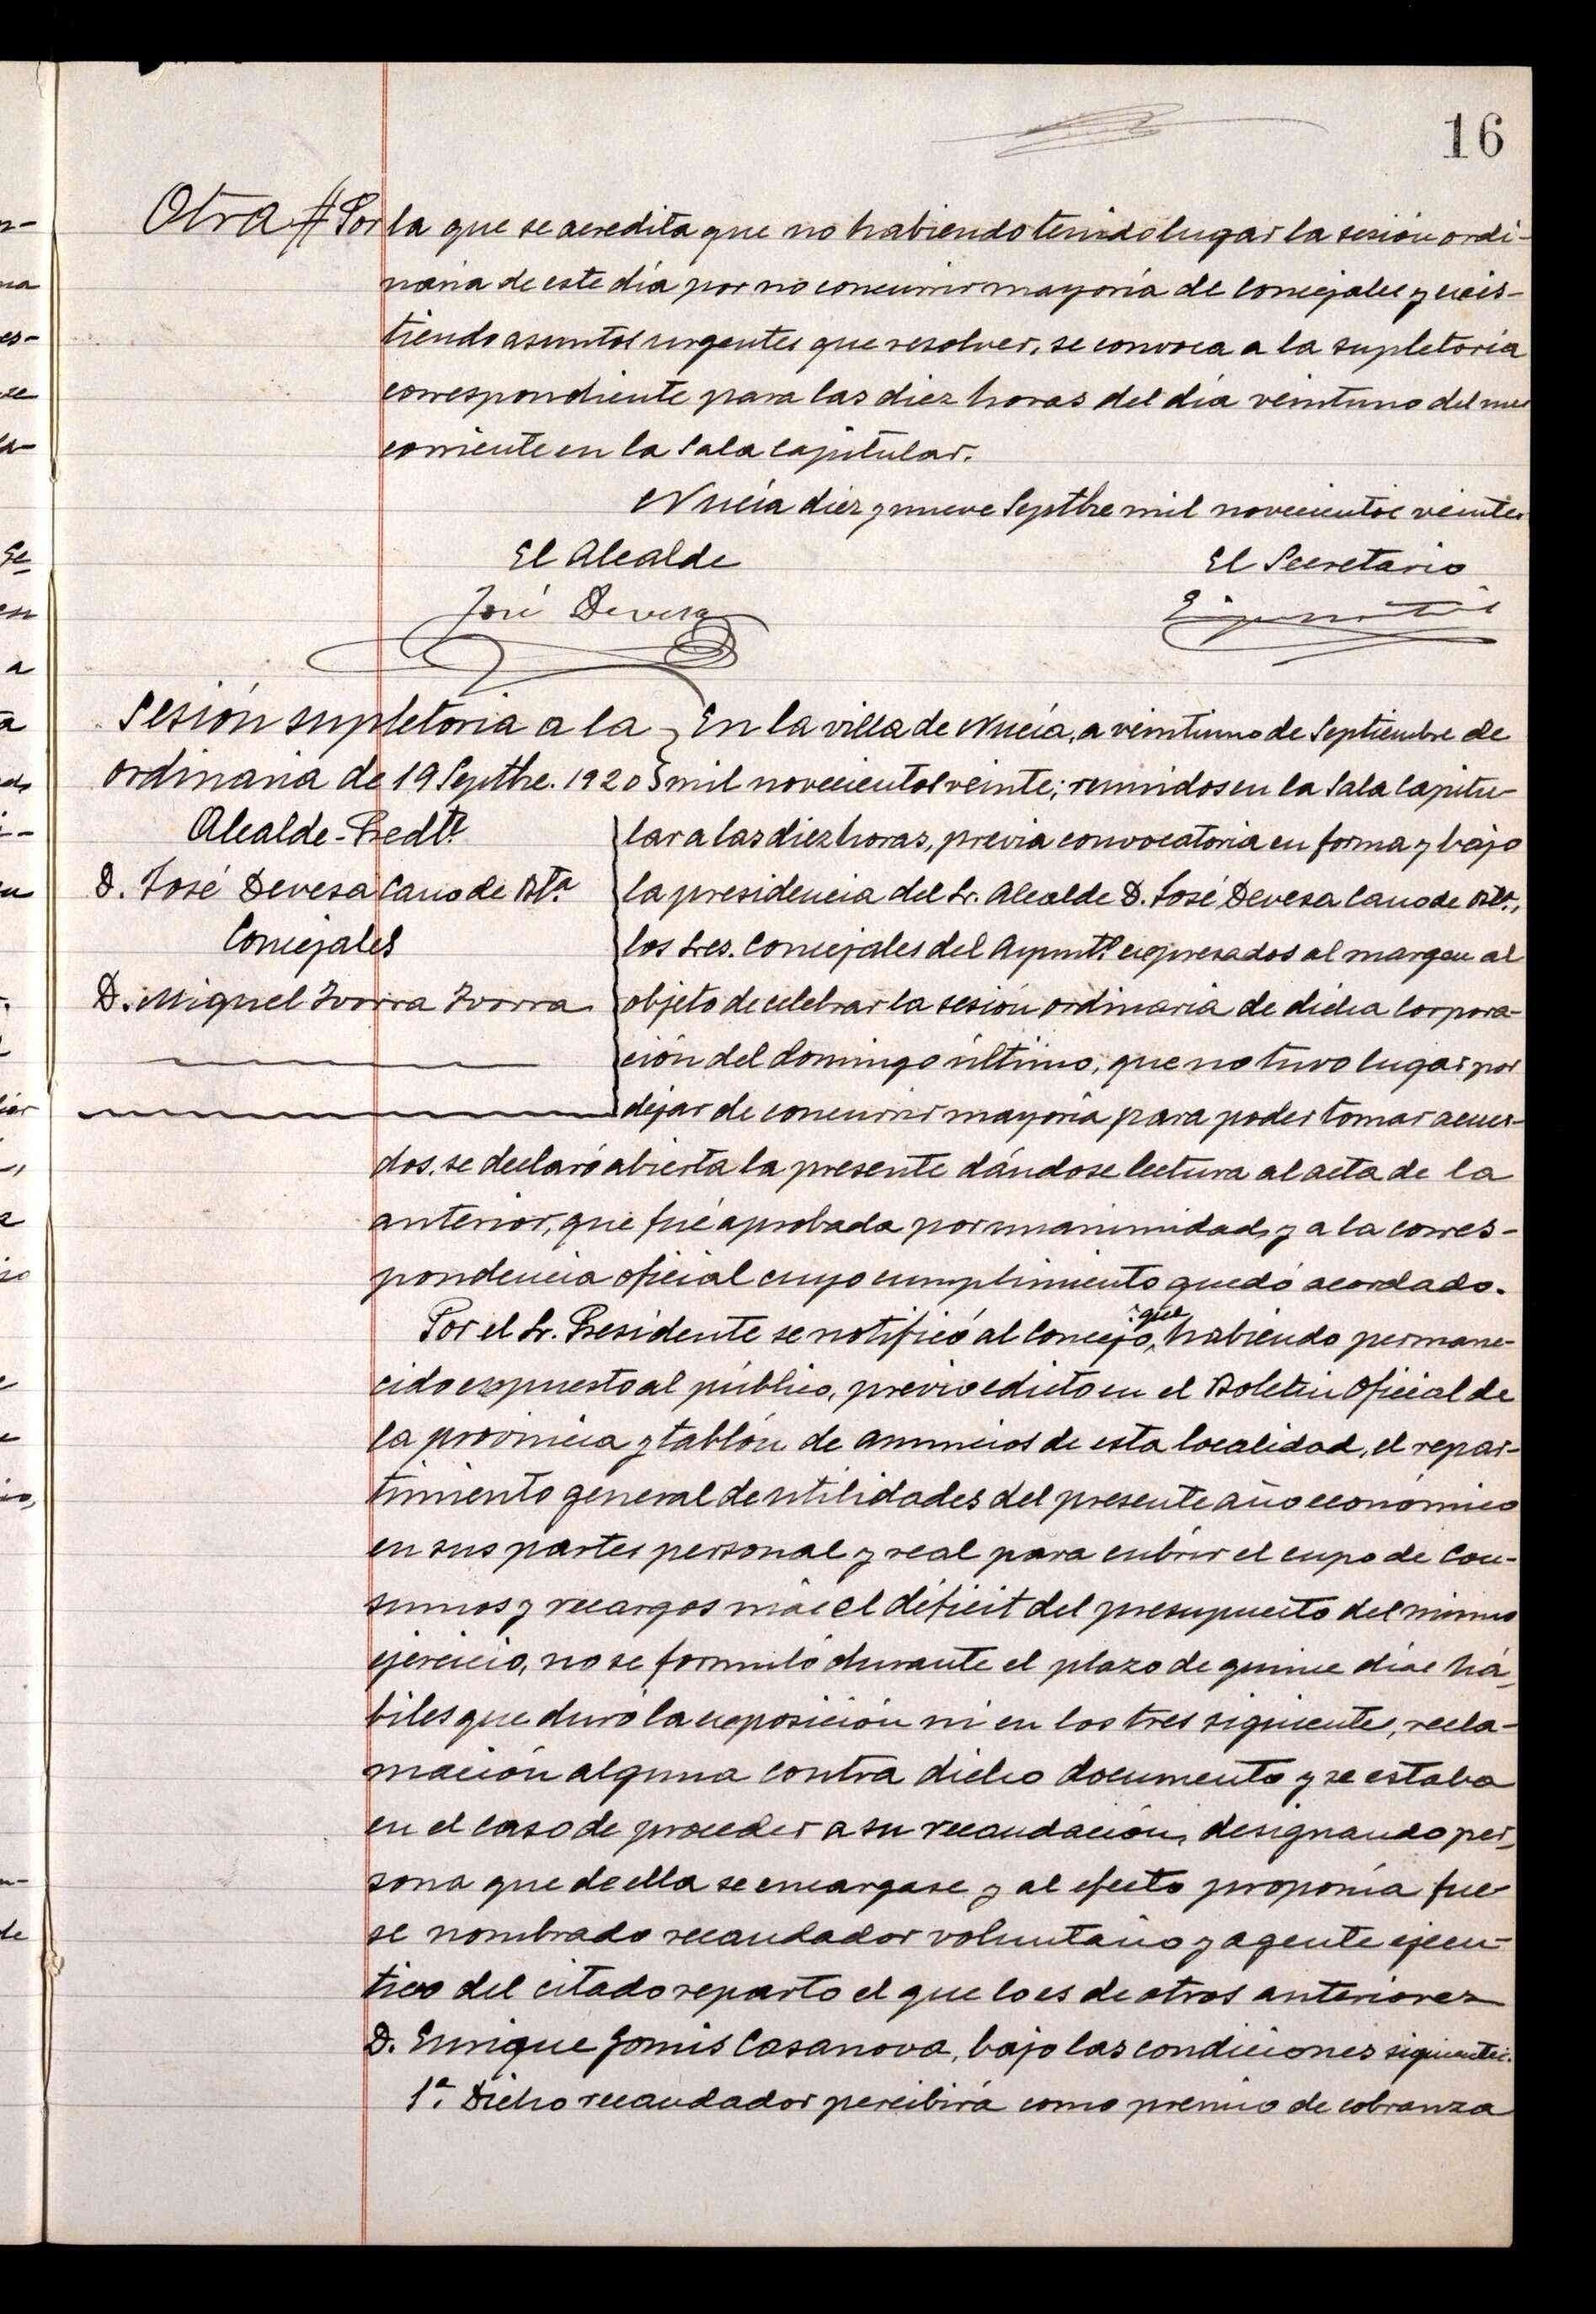 16
Otra # Por la que se acredita que no habiendo tenido lugar la sesión ordi-
naria de este día por no concurrir mayoría de Concejales y exis-
tiendo asuntos urgentes que resolver, se convoca a la supletoria
correspondiente para las diez horas del día veintuno del mes
corriente en la Sala Capitular.
Nucía diez y nueve Septbre mil novecientos veinte.
El Alcalde
El Secretario
José Devesa
Sesión supletoria a la
ordinaria de 19 Septbre. 1920
Alcalde-Predte.
D. José Devesa Cano de Bta.
Concejales
D. Miguel Ivorra Ivorra
En la villa de Nucía, a veintiuno de Septiembre de
mil novecientos veinte; reunidos en la Sala Capitu-
lar a las diez horas, previa convocatoria en forma y bajo
la presidencia del Sr. Alcalde D. José Devesa Cano de Bta.,
los Sres. Concejales del Ayuntº expresados al margen al
objeto de celebrar la sesión ordinaria de dicha Corpora-
ción del domingo último, que no tuvo lugar por
dejar de concurrir mayoría para poder tomar acuer-
dos, se declaró abierta la presente dándose lectura al acta de la
anterior, que fué aprobada por unanimidad, y a la corres-
pondencia oficial cuyo cumplimiento quedó acordado.
Por el Sr. Presidente se notificó al Concejo, que habiendo permane-
cido expuesto al público, previo edicto en el Boletín Oficial de
la provincia y tablón de anuncios de esta localidad, el repar-
timiento general de utilidades del presente año económico
en sus partes personal y real para cubrir el cupo de Con-
sumos y recargos más el déficit del presupuesto del mismo
ejercicio, no se formuló durante el plazo de quince días há-
biles que duró la exposición ni en los tres siguientes, recla-
mación alguna contra dicho documento y se estaba
en el caso de proceder a su recaudación, designando per-
sona que de ella se encargase y al efecto proponía fue-
se nombrado recaudador voluntario y agente ejecu-
tivo del citado reparto el que lo es de otros anteriores
D. Enrique Gomis Casanova, bajo las condiciones siguientes.
1ª. Dicho recaudador percibirá como premio de cobranza